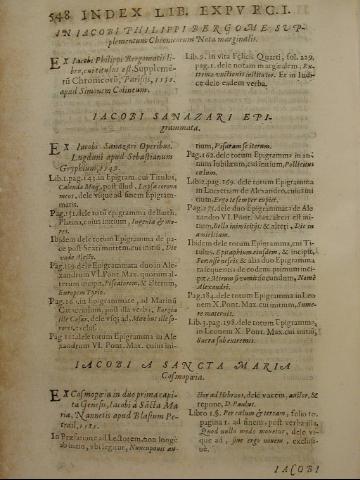 548 INDEX LIB. EXPVRCI.
IN IACOBI PHILIPPI BERGOME SVP-
plementum Chronicorum Nota marginalis.
EX Iacobi Philippi Bergomatis li-
bro, cui titulus est, Supplemē-
tū Chronicorū, Parisiis, 1535.
apud Simonem Colinæum.
Lib. 9. in vita Felicis Quarti, fol. 229.
pag. 1. dele notam marginalem, Ex-
trema vnctionis institutor. Et in Indi-
ce dele eadem verba.
IACOBI SANAZARI EPI-
grammata.
EX Iacobi Sanazari Operibus.
Lugduni apud Sebastianum
Gryphium, 1543.
Lib. 1. pag. 143. in Epigram. cui Titulus,
Calenda Maij, post illud,
meri, dele vsque ad finem Epigram-
matis.
Pag. 151. dele totū epigramma de
Platina, cuius initium, Ingenia & mo-
res.
Ibidem dele totum Epigramma de pa-
ce post
Pag. 159. dele Epigrammata duo in Ale-
xandrum VI. Pont. Max. quorum al-
terum incipit, & alterum,
Europen Tyrio.
Pag. 161. in Epigrammate, ad Marinū
post illa verba,
ille Cæsar, dele vsq; ad,
Pag. 162. dele totum Epigramma in Ale-
xandrum VI. Pont. Max. cuius ini-
tium, Pisarum se iterum.
Pag. 162. dele totum Epigramma in an-
num Iubilæum, cui initium, Pollicitus
cœlum.
Lib. 2. pag. 169. dele totum Epigramma
in Lucretiam de Alexandro, cui ini-
tium, Ergo te semper cupiet.
Pag. 171. dele duo Epigrammata de Ale-
xandro VI. Pont. Max. alteri est ini-
tium, & alteri, Die in
Ibidem dele totum Epigramma, cui Ti-
tulus, Epitaphium eiusdem, & incipit,
Fortasse nescis & alia duo Epigramma
ta sequentia de eodem; primum inci-
pit: secundum, Namq́
Alexandri.
Pag. 184. dele totum Epigramma in Leo-
nem X. Pont. Max. cui initium, Sume-
re maternis.
Lib. 3. pag. 198. dele totum Epigramma,
in Leonem X. Pont. Max. cui initium,
Sacra sub extrema.
IACOBI A SANCTA MARIA
Cosmopœia.
EX Cosmopœia in duo prima capi-
ta Genesis, Iacobi à Sāctā Ma-
ria, Nannetis apud Blasium Pe-
trail, 1585.
In Præfatione ad Lectorem, non longè
ab initio, vbi legitur, Nuncupatus au-
ctor ad Hebræos, dele vocem, auctor, &
repone, D. Paulus.
Libro 1. §. Per cœlum & terram, folio 10.
pagina 1. ad finem, post verba illa,
Quod nullo modo mouetur, dele vs-
que ad, sine ergo mouent, exclusi-
uè.
IACOBI